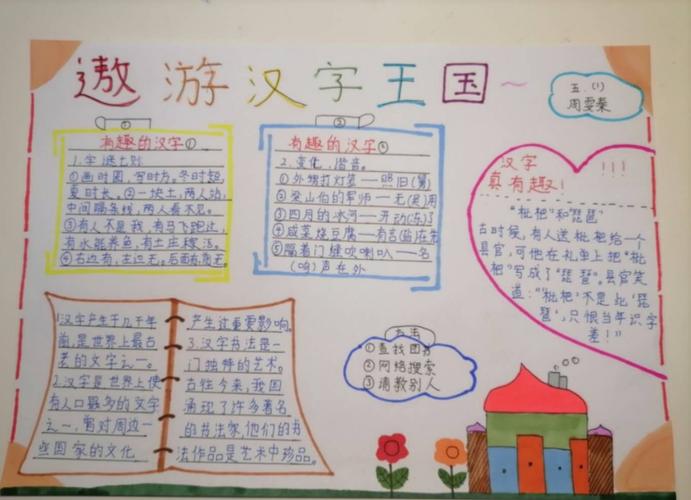 遨游汉字王国~
五.(1)
周雯蓁
①
有趣的汉字①
1.字谜七则
①画时圆,写时方,冬时短,
夏时长。②一块土,两人站,
中间隔条线,两人看不见。
③有人不是我,有马飞跑过,
有水能养鱼,有土庄稼活。
④右边有,左边无。后面有
有趣的汉字
2.变化,谐音。
①外甥打灯笼——照旧(舅)
②梁山伯的军师——无(吴)用
③四月的冰河——开动(冻)了
④咸菜烧豆腐——有言(盐)在先
⑤隔着门缝吹喇叭——名
(鸣)声在外
汉字
真有趣! !!!
"枇杷"和"琵琶"
古时侯,有人送枇杷给一个
县官,可他在礼单上把"枇
杷"写成了"琵琶"。县官笑
道:"'枇杷'不是此'琵
琶',只恨当年识字
差!"
1.汉字产生于几千年
前,是世界上最古
老的文字之一。
2.汉字是世界上使
有人口最多的文字
之一,曾对周边一
些国家的文化
产生过重要影响。
3.汉字书法是一
门独特的艺术。
古往今来,我国
涌现了许多著名
的书法家,他们的书
法作品是艺术中珍品。
办法
①查找图书
②网络搜索
③请教别人